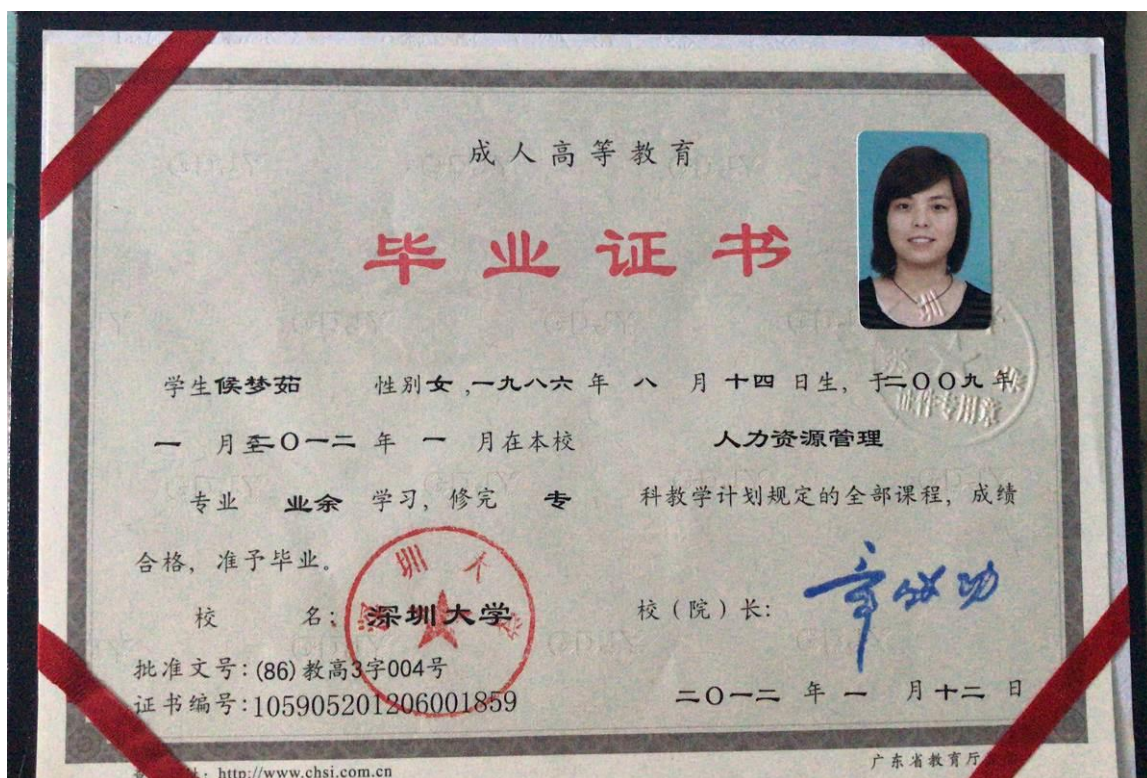 成人高等教育
毕业证书
学生侯梦茹 性别女，一九八六年八月十四日生，于二〇〇九年
一月至二〇一二年一月在本校 人力资源管理
专业 业余 学习，修完 专 科教学计划规定的全部课程，成绩
合格，准予毕业。
校 名：深圳大学 校（院）长：章必功
批准文号：(86)教高3字004号
证书编号：105905201206001859 二〇一二年一月十二日
http://www.chsi.com.cn 广东省教育厅
深圳大学
证件专用章